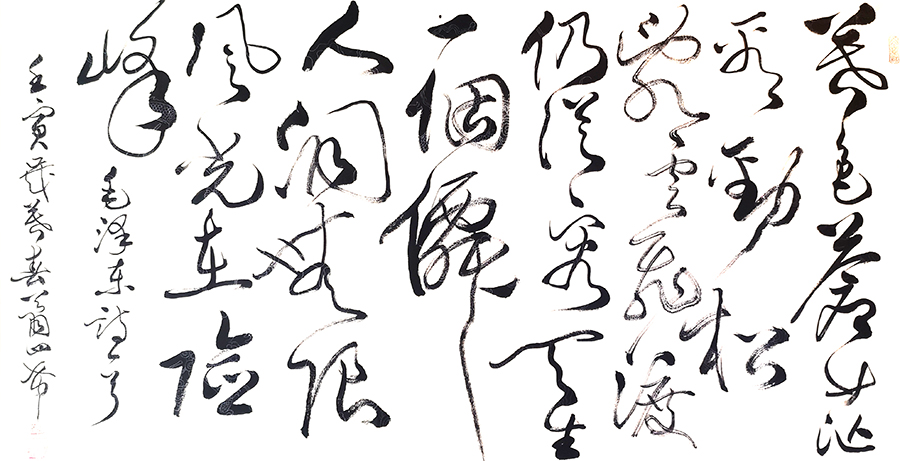 暮色蒼茫
看勁松
亂雲飛渡
仍從容天生
一個僊
人洞無限
風光在險
峰
毛澤東詩一首
壬寅歲暮春